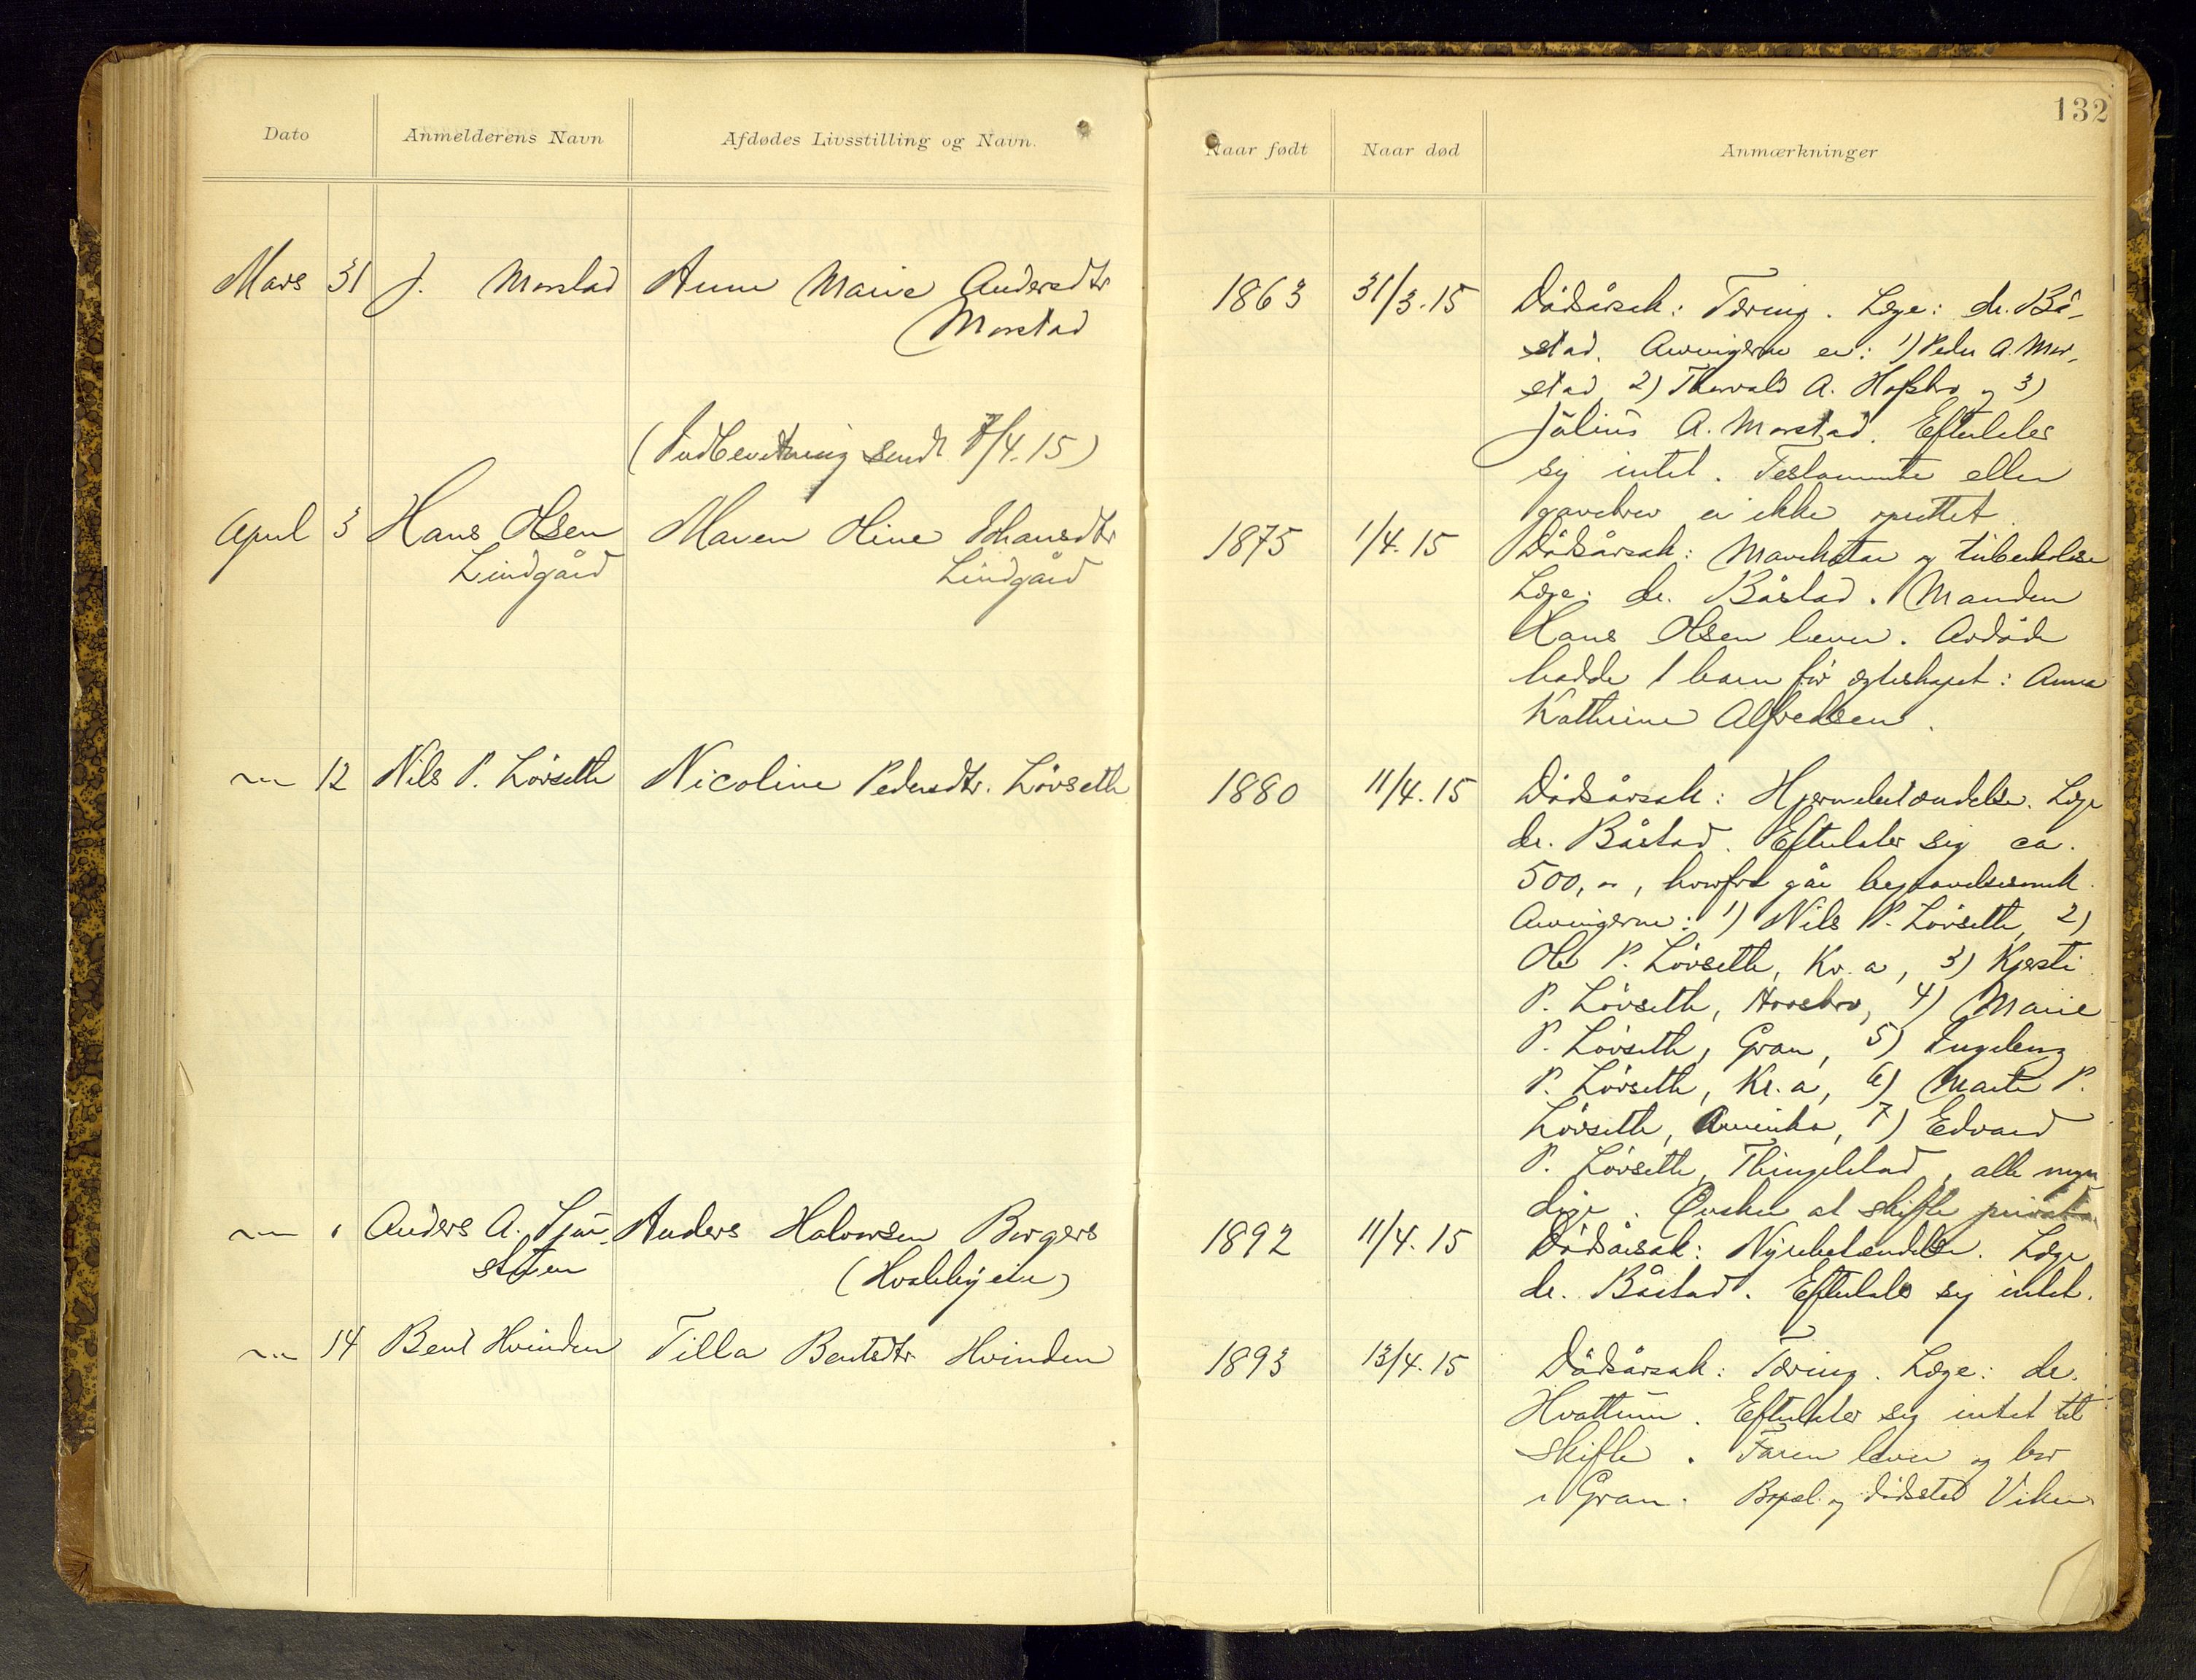 132
Dato Anmelderens Navn Afdødes Livsstilling og Navn. Naar født Naar død Anmærkninger
Mars 31 J. Morstad Anne Marie Andersdtr
Morstad
1863 31/3.15 Dødsårsak: Tæring. Læge: dr. Bå-
stad. Arvingerne er: 1) Peder A. Mor-
stad 2) Thorvald A. Hofsbro og 3)
Julius A. Morstad. Efterlater
sig intet. Testamente eller
gavebrev er ikke oprettet.
(Indberetning sendt 7/4.15)
April 3 Hans Olsen Maren Oline Johansdtr
Lindgård Lindgård
1875 1/4.15 Dødsårsak: Mavekatar og tuberkulose
Læge: dr. Båstad. Manden
Hans Olsen lever. Avdøde
hadde 1 barn før egteskapet: Anna
Kathrine Alfredsen.
-"- 12 Nils P. Lövseth Nicoline Pedersdtr. Lövseth
1880 11/4.15 Dødsårsak: Hjernebetændelse. Læge
dr. Båstad. Efterlater sig ca.
500,-, hvorfra går begravelsesomk.
Arvingerne: 1) Nils P. Lövseth, 2)
Ole P. Lövseth, Kr.a, 3) Kjersti
P. Lövseth, 4) Marie
P. Lövseth, Gran, 5) Ingeborg
P. Lövseth, Kr.a, 6) Marte P.
Lövseth, Amerika, 7) Edvard
P. Lövseth, Thingelstad, alle myn-
dige. Ønsker at skifte privat.
-"- " Anders A. Anders Halvorsen Borgers
(Hvalebyeie)
1892 11/4.15 Dødsårsak: Nyrebetændelse. Læge
dr. Båstad. Efterlater sig intet.
-"- 14 Bent Hvinden Tilla Bentsdtr Hvinden
1893 13/4.15 Dødsårsak: Tæring. Læge: dr.
Hvattum. Efterlater sig intet til
skifte. Faren lever og bor
i Gran. Bopæl og dødssted Viken